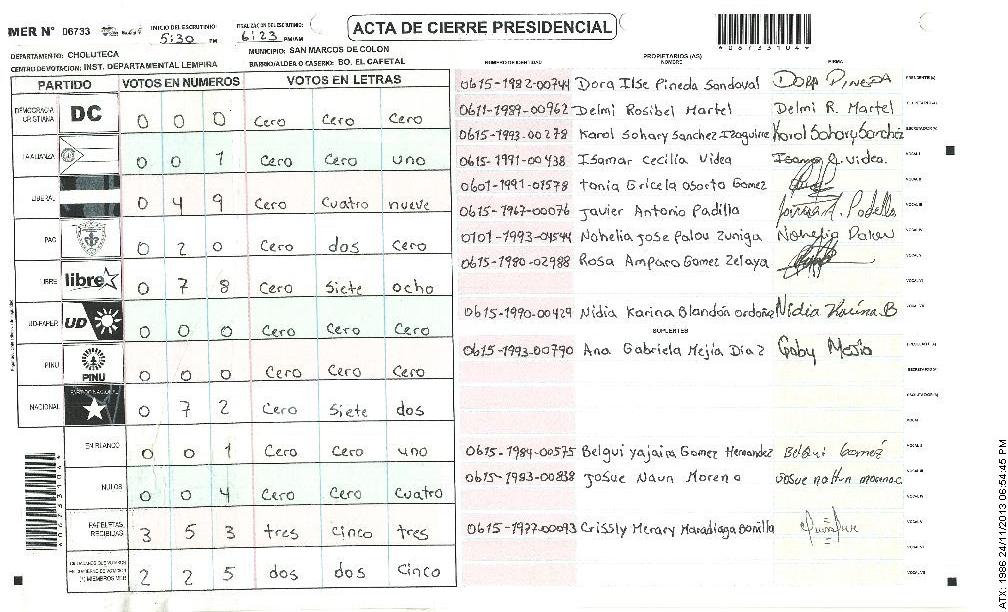 MER N° 06733
INICIO DEL ESCRUTINIO: 5:30 PM
FINALIZACION DEL ESCRUTINIO: 6:23 PM/AM
ACTA DE CIERRE PRESIDENCIAL
DEPARTAMENTO: CHOLUTECA
MUNICIPIO: SAN MARCOS DE COLON
CENTRO DE VOTACION: INST. DEPARTAMENTAL LEMPIRA
BARRIO/ALDEA O CASERIO: BO. EL CAFETAL
PARTIDO VOTOS EN NUMEROS VOTOS EN LETRAS
DEMOCRACIA CRISTIANA DC 0 0 0 Cero Cero Cero
LA ALIANZA 0 0 1 Cero Cero uno
LIBERAL 0 4 9 Cero Cuatro nueve
PAC 0 2 0 Cero dos Cero
LIBRE libre 0 7 8 Cero Siete ocho
UD-FAPER UD 0 0 0 Cero Cero Cero
PINU PINU 0 0 0 Cero Cero Cero
NACIONAL 0 7 2 Cero Siete dos
EN BLANCO 0 0 1 Cero Cero uno
NULOS 0 0 4 Cero Cero Cuatro
PAPELETAS RECIBIDAS 3 5 3 tres Cinco tres
2 2 5 dos dos Cinco
NUMERO DE IDENTIDAD PROPIETARIOS (AS) NOMBRE FIRMA
0615-1982-00744 Dora Ilse Pineda Sandoval DORA PINEDA
0611-1989-00962 Delmi Rosibel Martel Delmi R. Martel
0615-1993-00278 Karol Sohary Sanchez Izaguirre Karol Sohary Sanchez
0615-1991-00438 Isamar Cecilia Videa
0601-1991-01578 tania Gricela Osorto Gomez
0615-1967-00076 Javier Antonio Padilla
0101-1993-04544 Nohelia Jose Palou Zuniga
0615-1980-02988 Rosa Amparo Gomez Zelaya
0615-1990-00429 Nidia Karina Blandón Ordoñe Nidia Karina B
SUPLENTES
0615-1993-00790 Ana Gabriela Mejia Diaz Gaby Mejia
0615-1984-00575 Belqui yajaira Gomez Hernandez Belqui Gomez
0615-1983-00838 Josue Naun Moreno
0615-1977-00093 Crissly Merary Maradiaga Bonilla
0 6 7 3 3 1 0 4
ATX: 1986 24/11/2013 06:54:45 PM